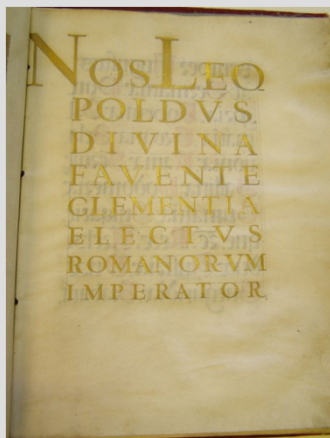 NOS LEO
POLDVS
DIVINA
FAVENTE
CLEMENTIA
ELECTVS
ROMANORVM
IMPERATOR